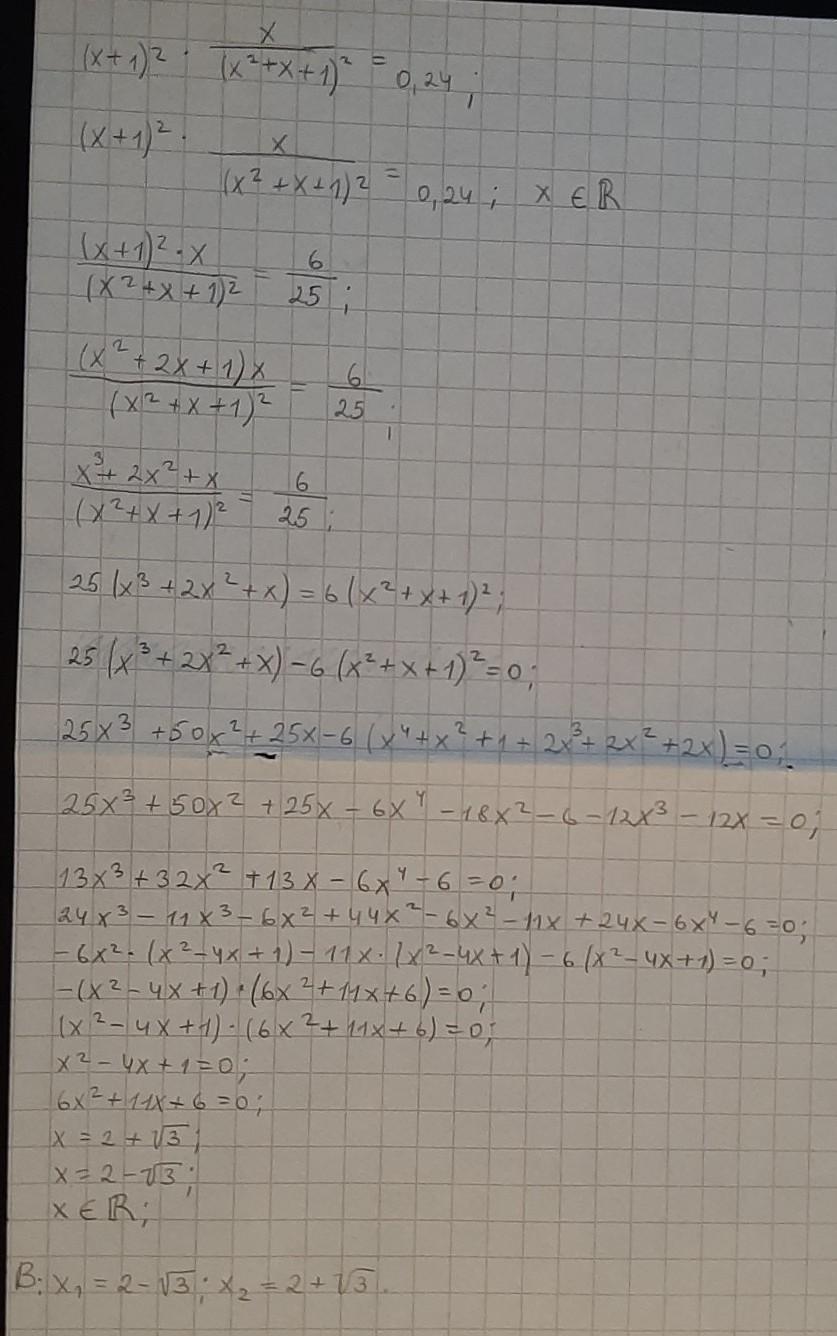 (x+1)² · x/(x²+x+1)² = 0,24;
(x+1)² · x/(x²+x+1)² = 0,24; x ∈ ℝ
(x+1)²·x/(x²+x+1)² = 6/25;
(x²+2x+1)x/(x²+x+1)² = 6/25;
x³+2x²+x/(x²+x+1)² = 6/25;
25(x³+2x²+x)=6(x²+x+1)²;
25(x³+2x²+x)-6(x²+x+1)²=0;
25x³+50x²+25x-6(x⁴+x²+1+2x³+2x²+2x)=0;
25x³+50x²+25x-6x⁴-18x²-6-12x³-12x=0;
13x³+32x²+13x-6x⁴-6=0;
24x³-11x³-6x²+44x²-6x²-11x+24x-6x⁴-6=0;
-6x²·(x²-4x+1)-11x·(x²-4x+1)-6(x²-4x+1)=0;
-(x²-4x+1)·(6x²+11x+6)=0;
(x²-4x+1)·(6x²+11x+6)=0;
x²-4x+1=0;
6x²+11x+6=0;
x=2+√3;
x=2-√3;
x∈ℝ;
В: x₁=2-√3; x₂=2+√3.